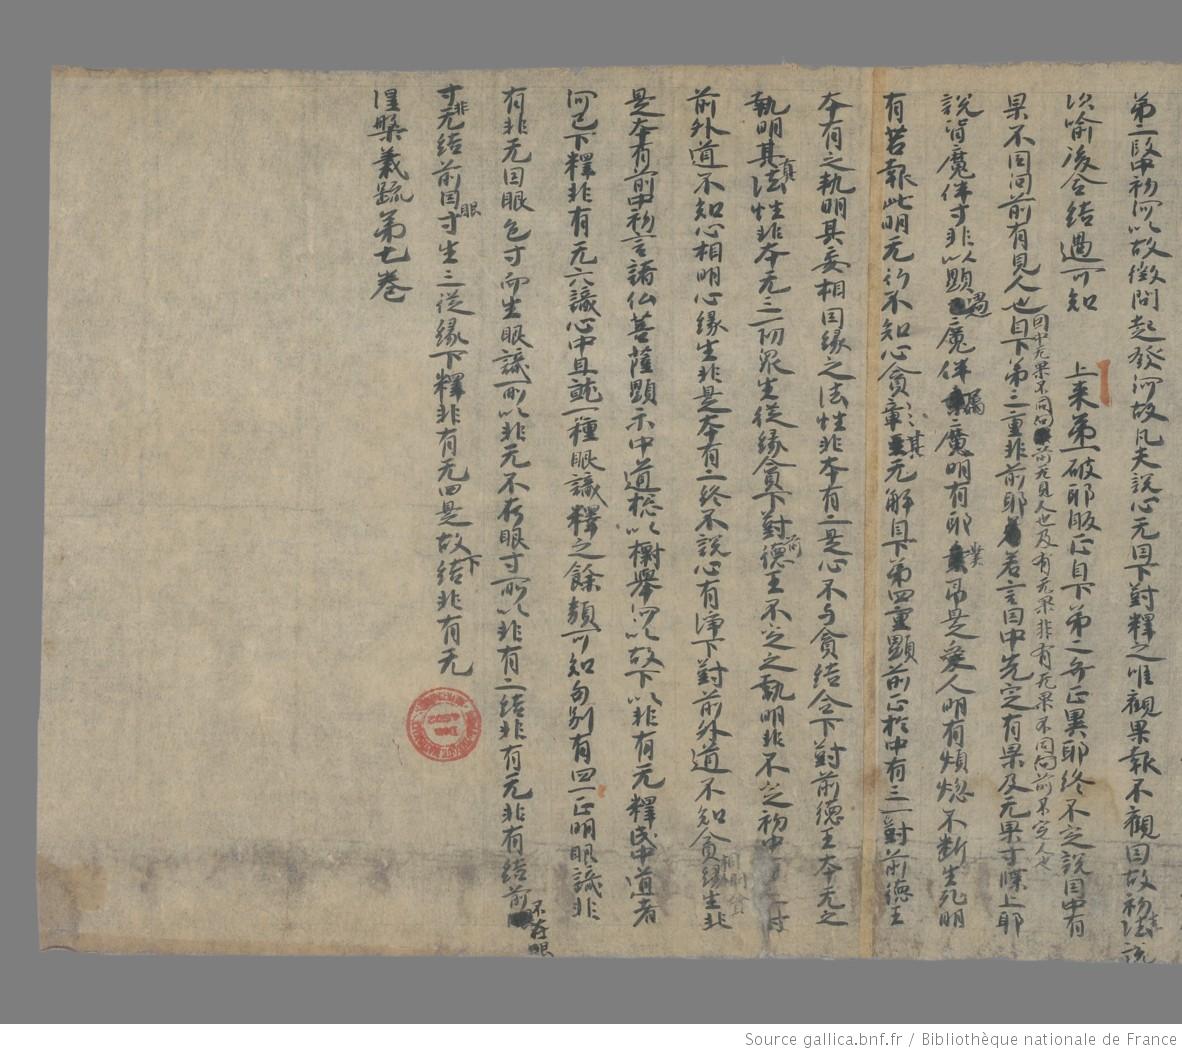 第二段中初何以故徴問起發何故凡夫說心无因下對釋之唯觀果報不觀因故初法說
次喻後合結過可知 上來第一破耶販正自下第二弁正異耶終不定說因中有
果不同同前有見人也自下第三重非前耶若言因中先定有果及无果寸牒上耶
因中无果不同同前无見人也及有无果非有无果不同同前不定人也
說皆魔伴寸非以顯愚魔伴属魔明有耶業帛是愛人明有煩惚不断生死明
有苦報此明无行不知心貪章其无解自下第四重顯前正於中有三一對前德王
本有之執明其委相因緣之法性非本有二是心不与貪結合下對前德王本无之
執明其真法性非本无三一切衆生從緣貪下對前德王不定之執明非不定初中
前外道不知心相明心緣生非是本有二終不說心有淨下對前外道不知貪緣生非
是本有前中初言諸仏菩薩顯示中道捴以摽舉何以故下以非有无釋成中道者
何已下釋非有无六識心中且就一種眼識釋之餘類可知句別有四一正明眼識非
有非无因眼色寸而生眼識所以非无不在眼寸所以非有二結非有无非有結前不在眼
寸非无結前因眼寸生三從緣下釋非有无四是故下結非有无
涅槃義疏第七卷
Source gallica.bnf.fr / Bibliothèque nationale de France